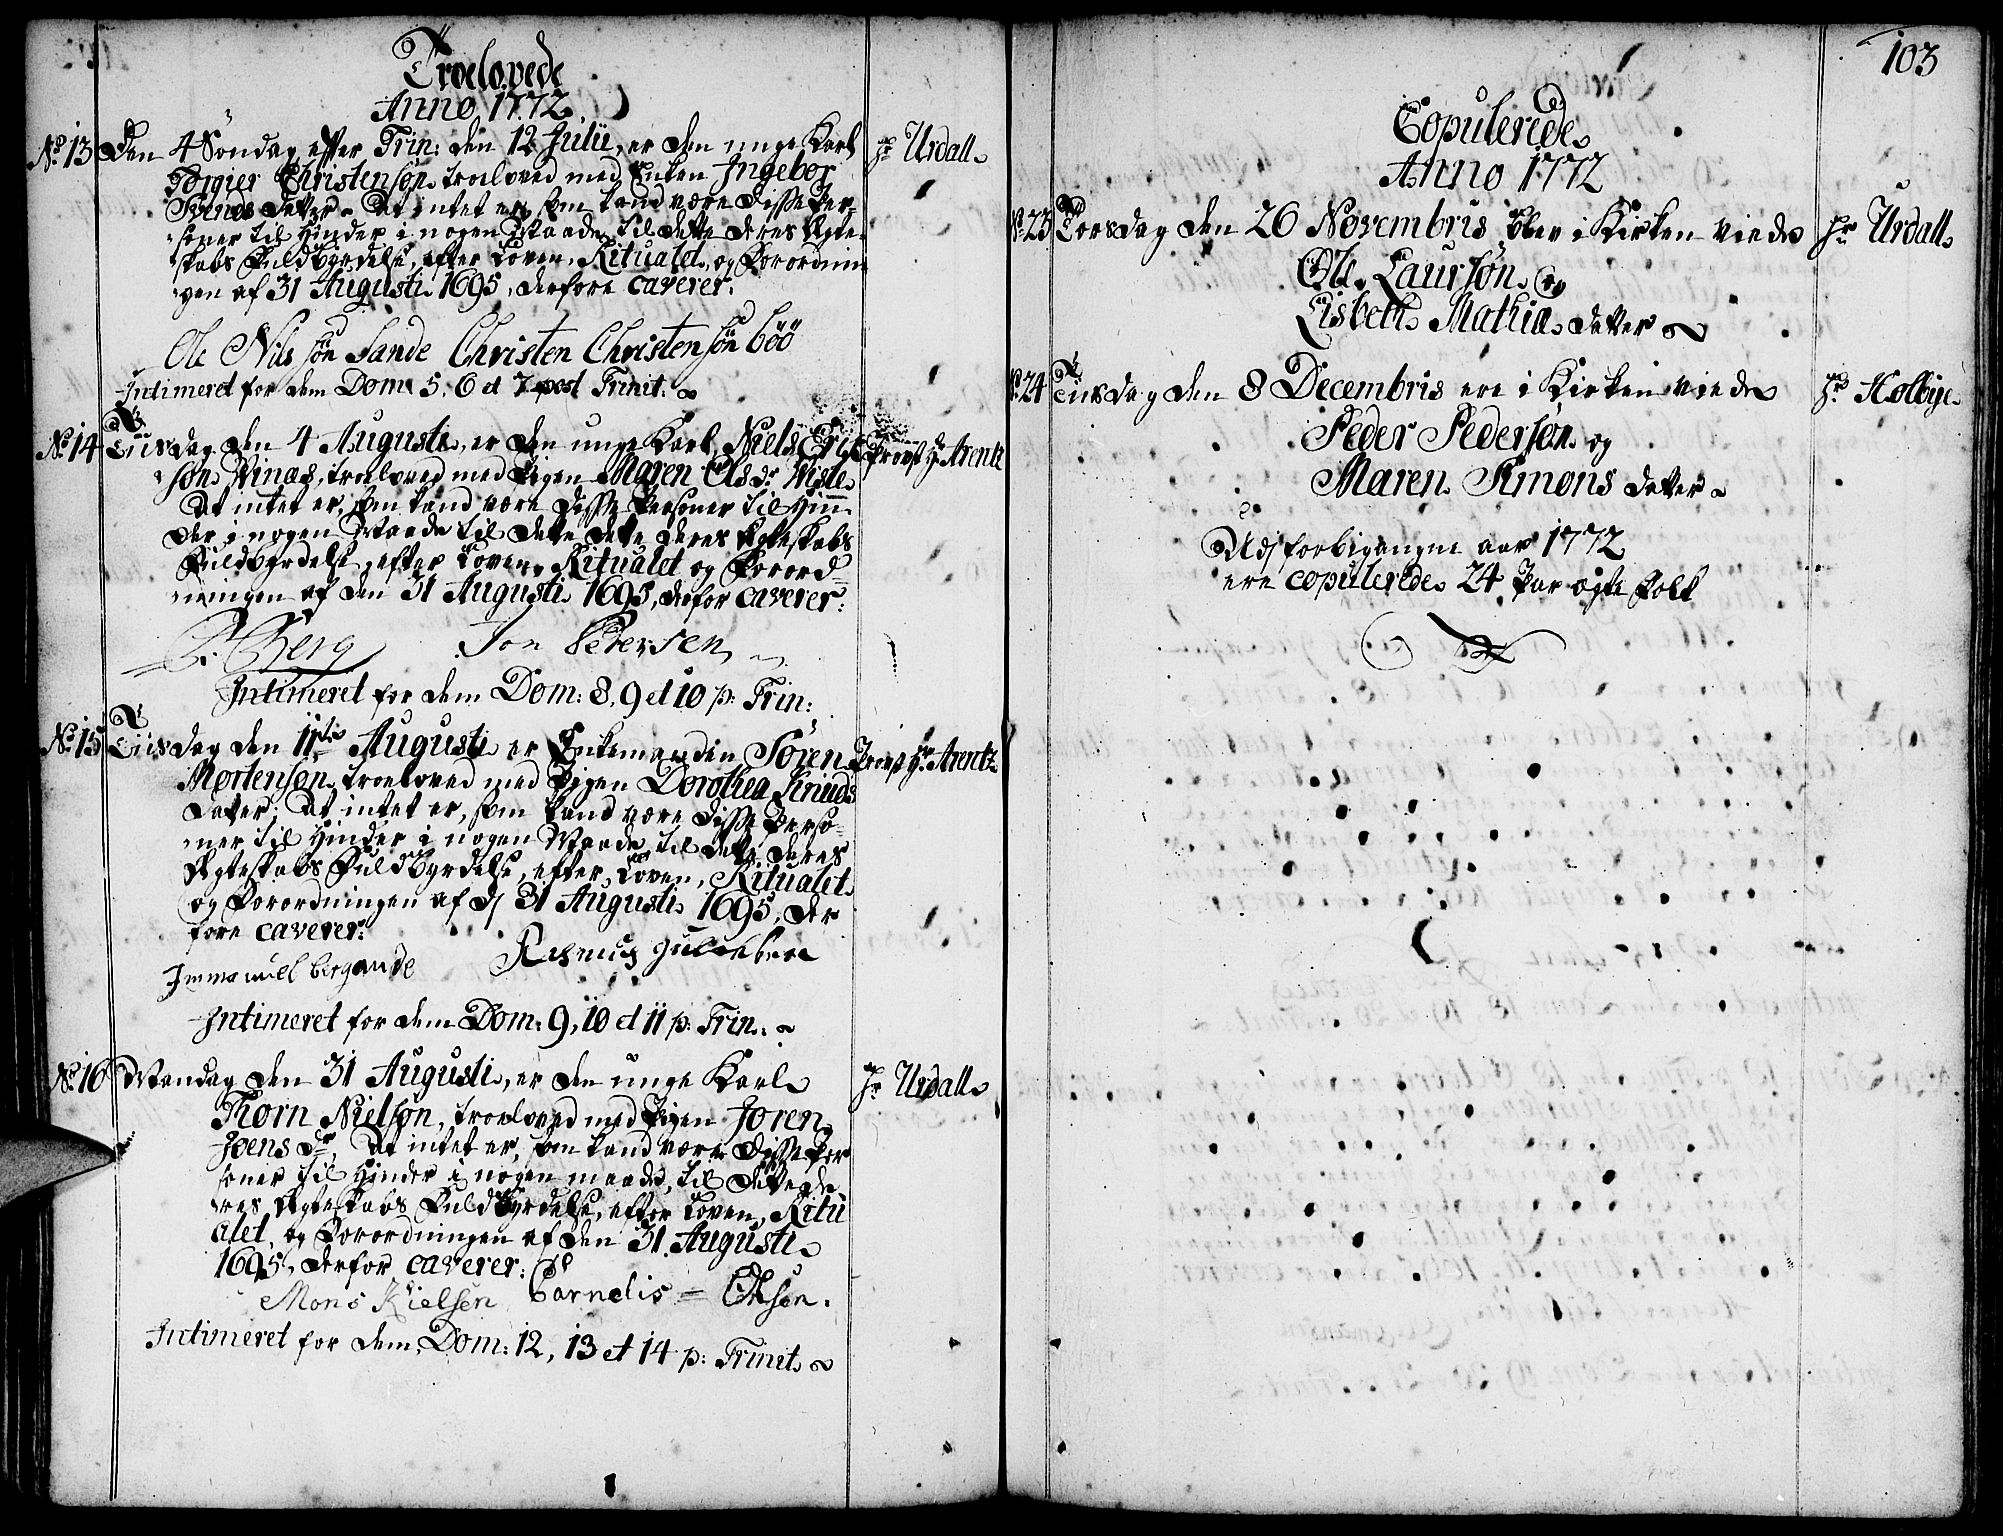 Troelovede
Anno 1772
No 13 Den 4 Söndag efter Trin: den 12 Julii, er den unge Karl Hr Urdall
Torgier Christensøn troeloved med Enken Ingebor
Svends datter. At intet er, som kand være disse Per-
soner til Hinder i nogen Maade, til dette deres Ægte-
skabs Fuldbyrdelse, efter Loven, Ritualet, og Forordnin
gen af 31 Augusti 1695, derfore caverer.
Ole Nils søn Sande Christen Christensøn böö
Intimeret for dem Dom: 5. 6 et 7 post Trinit:
No 14 Tiisdag den 4 Augusti, er den unge Karl Niels Eric Provst Hr Arentz
søn Vinæs, troeloved med Pigen Maren Olsdr Viste
At intet er, som kand være disse Personer til Hin-
der i nogen Maade til dette dette deres Ægteskabs
Fuldbyrdelse, efter Loven, Ritualet og Forord=
ningen af den 31 Augusti 1695, derfor caverer:
Berg Jon Pedersen
Intimeret for dem Dom: 8, 9 et 10 p: Trin:
No 15 Tiisdag den 11te Augusti er Enkemanden Sören Provst Hr Arentz
Mortensøn troeloved med Pigen Dorothea Knuds
datter; At intet er, som kand være disse Perso-
ner til Hinder i nogen Maade, til dette deres
Ægteskabs Fuldbyrdelse, efter Loven, Ritualet
og Forordningen af d/ 31 Augusti 1695, der
fore caverer:
Immanuel bergande Rasmus
Intimeret for dem Dom: 9, 10 et 11 p: Trin:
No 16 Mandag den 31 Augusti, er den unge Karl Hr Urdall
Thorn Nielsøn, troeloved med Pigen Joren
Joens dr, At intet er, som kand være disse Per
soner til Hinder i nogen maade, til dette de
res Ægteskabs Fuldbyrdelse, efter Loven, Ritu
alet, og Forordningen af den 31 Augusti
1695, derfor caverer:
Mons Nielsen Cornelis = Olsen.
Intimeret for dem Dom: 12, 13 et 14 p: Trinit
103
Copulerede
Anno 1772
No 23 Torsdag den 26 Novembris blev i Kirken viede Hr Urdall
Ole Laursøn og
Lisbeth Mathiæ datter
No 24 Tiisdag den 8 Decembris ere i Kirken viede Hr Holbye
Peder Pedersøn og
Maren Simons datter
Udj forbigangne aar 1772
ere copulerede 24 Par ægte Folk